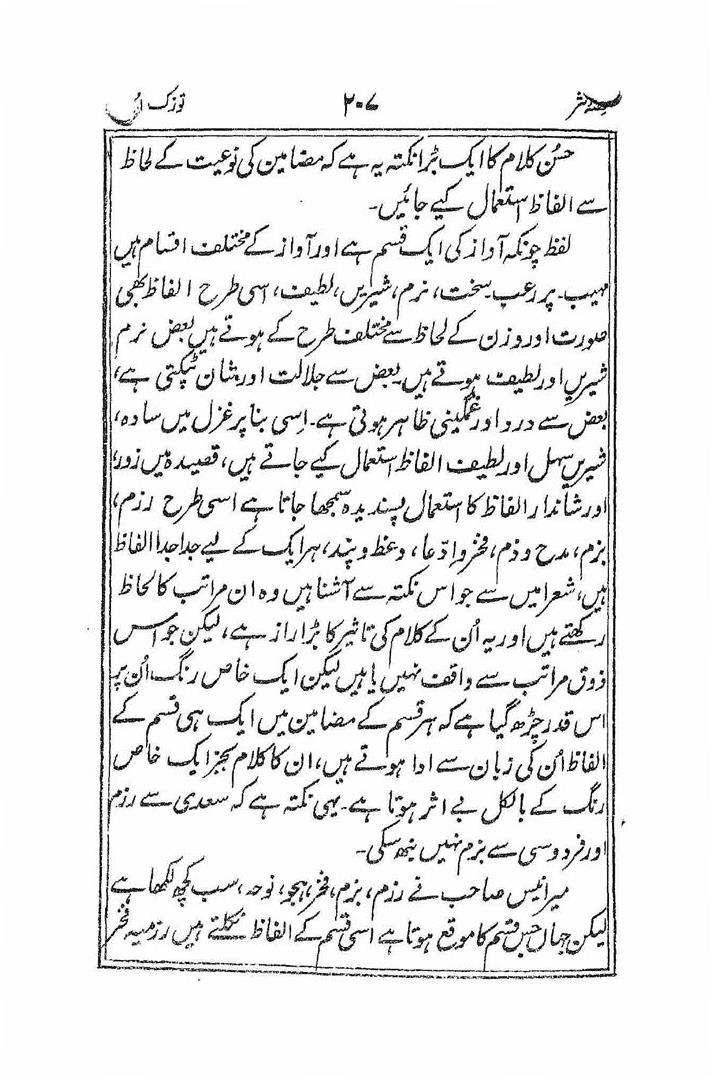 حصۂ نثر ۲۰۷ توزک اُر
حسُن کلام کا ایک بڑا نکتہ یہ ہے کہ مضامین کی نوعیت کے لحاظ
سے الفاظ استعمال کیے جائیں۔
لفظ چونکہ آواز کی ایک قسم ہے اور آواز کے مختلف اقسام ہیں
مہیب۔ پر رعب۔ سخت، نرم، شیریں، لطیف، اسی طرح الفاظ بھی
صورت اور وزن کے لحاظ سے مختلف طرح کے ہوتے ہیں بعض نرم
شیریں اور لطیف ہوتے ہیں۔ بعض سے جلالت اور شان ٹپکتی ہے،
بعض سے درد اور غمگینی ظاہر ہوتی ہے۔ اِسی بنا پر غزل میں سادہ،
شیریں سہل اور لطیف الفاظ استعمال کیے جاتے ہیں، قصیدہ میں زور،
اور شاندار الفاظ کا استعمال پسندیدہ سمجھا جاتا ہے اسی طرح رزم،
بزم، مدح و ذم، فخر و ادّعا، وعظ و پند، ہر ایک کے لیے جدا جدا الفاظ
ہیں، شعرا میں سے جو اس نکتہ سے آشنا ہیں وہ ان مراتب کا لحاظ
رکھتے ہیں اور یہ اُن کے کلام کی تاثیر کا بڑا راز ہے، لیکن جو اس
ذوق مراتب سے واقف نہیں یا ہیں لیکن ایک خاص رنگ اُن پر
اس قدر چڑھ گیا ہے کہ ہر قسم کے مضامین میں ایک ہی قسم کے
الفاظ اُن کی زبان سے ادا ہوتے ہیں، ان کا کلام بجز ایک خاص
رنگ کے بالکل بے اثر ہوتا ہے۔ یہی نکتہ ہے کہ سعدی سے رزم
اور فردوسی سے بزم نہیں نبھ سکی۔
میر انیس صاحب نے رزم، بزم، فخر، ہجو، نوحہ، سب کچھ لکھا ہے
لیکن جہاں جس قسم کا موقع ہوتا ہے اسی قسم کے الفاظ نکلتے ہیں رزمیہ فخر